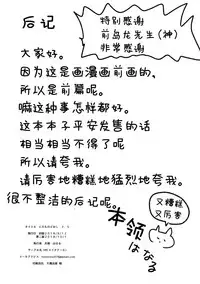 后记
特别感谢
前岛龙先生(神)
非常感谢
大家好。
因为这是画漫画前画的，
所以是前篇呢。
嘛这种事怎样都好。
这本本子平安发售的话
相当相当不得了呢
所以请夸我。
请厉害地糟糕地猛烈地夸我。
很不整洁的后记呢。
本领
はなる
又糟糕
又厉害